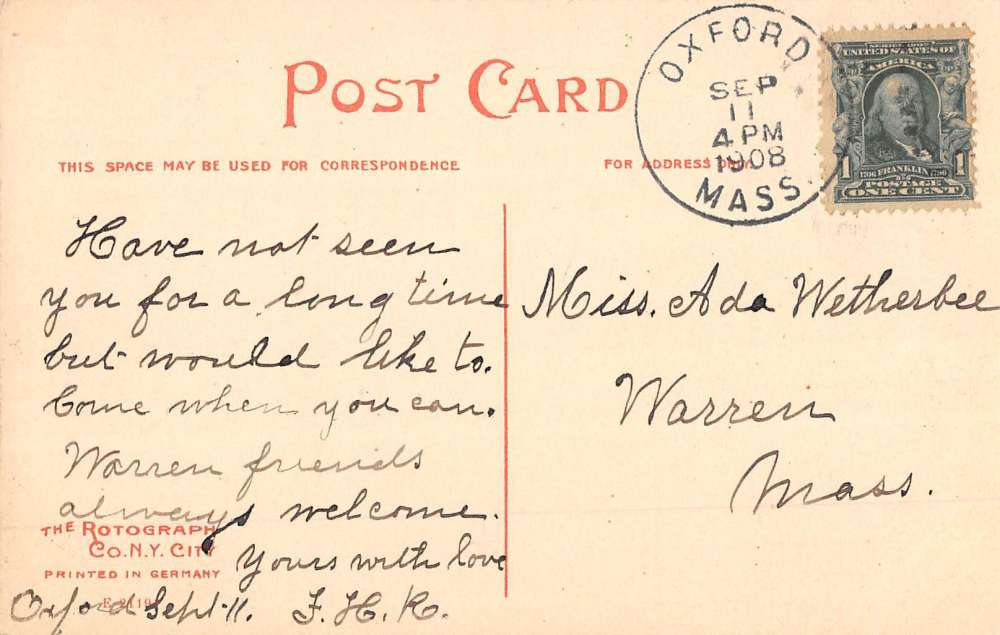 POST CARD
THIS SPACE MAY BE USED FOR CORRESPONDENCE
FOR ADDRESS ONLY
OXFORD
SEP
11
4 PM
1908
MASS.
UNITED STATES OF
AMERICA
1 1706 FRANKLIN 1790 1
POSTAGE
ONE CENT
Have not seen
you for a long time
but would like to.
Come when you can.
Warren friends
always welcome.
Yours with love
Oxford Sept-11. F. H. R.
Miss. Ada Wetherbee
Warren
Mass.
THE ROTOGRAPH
CO. N.Y. CITY
PRINTED IN GERMANY